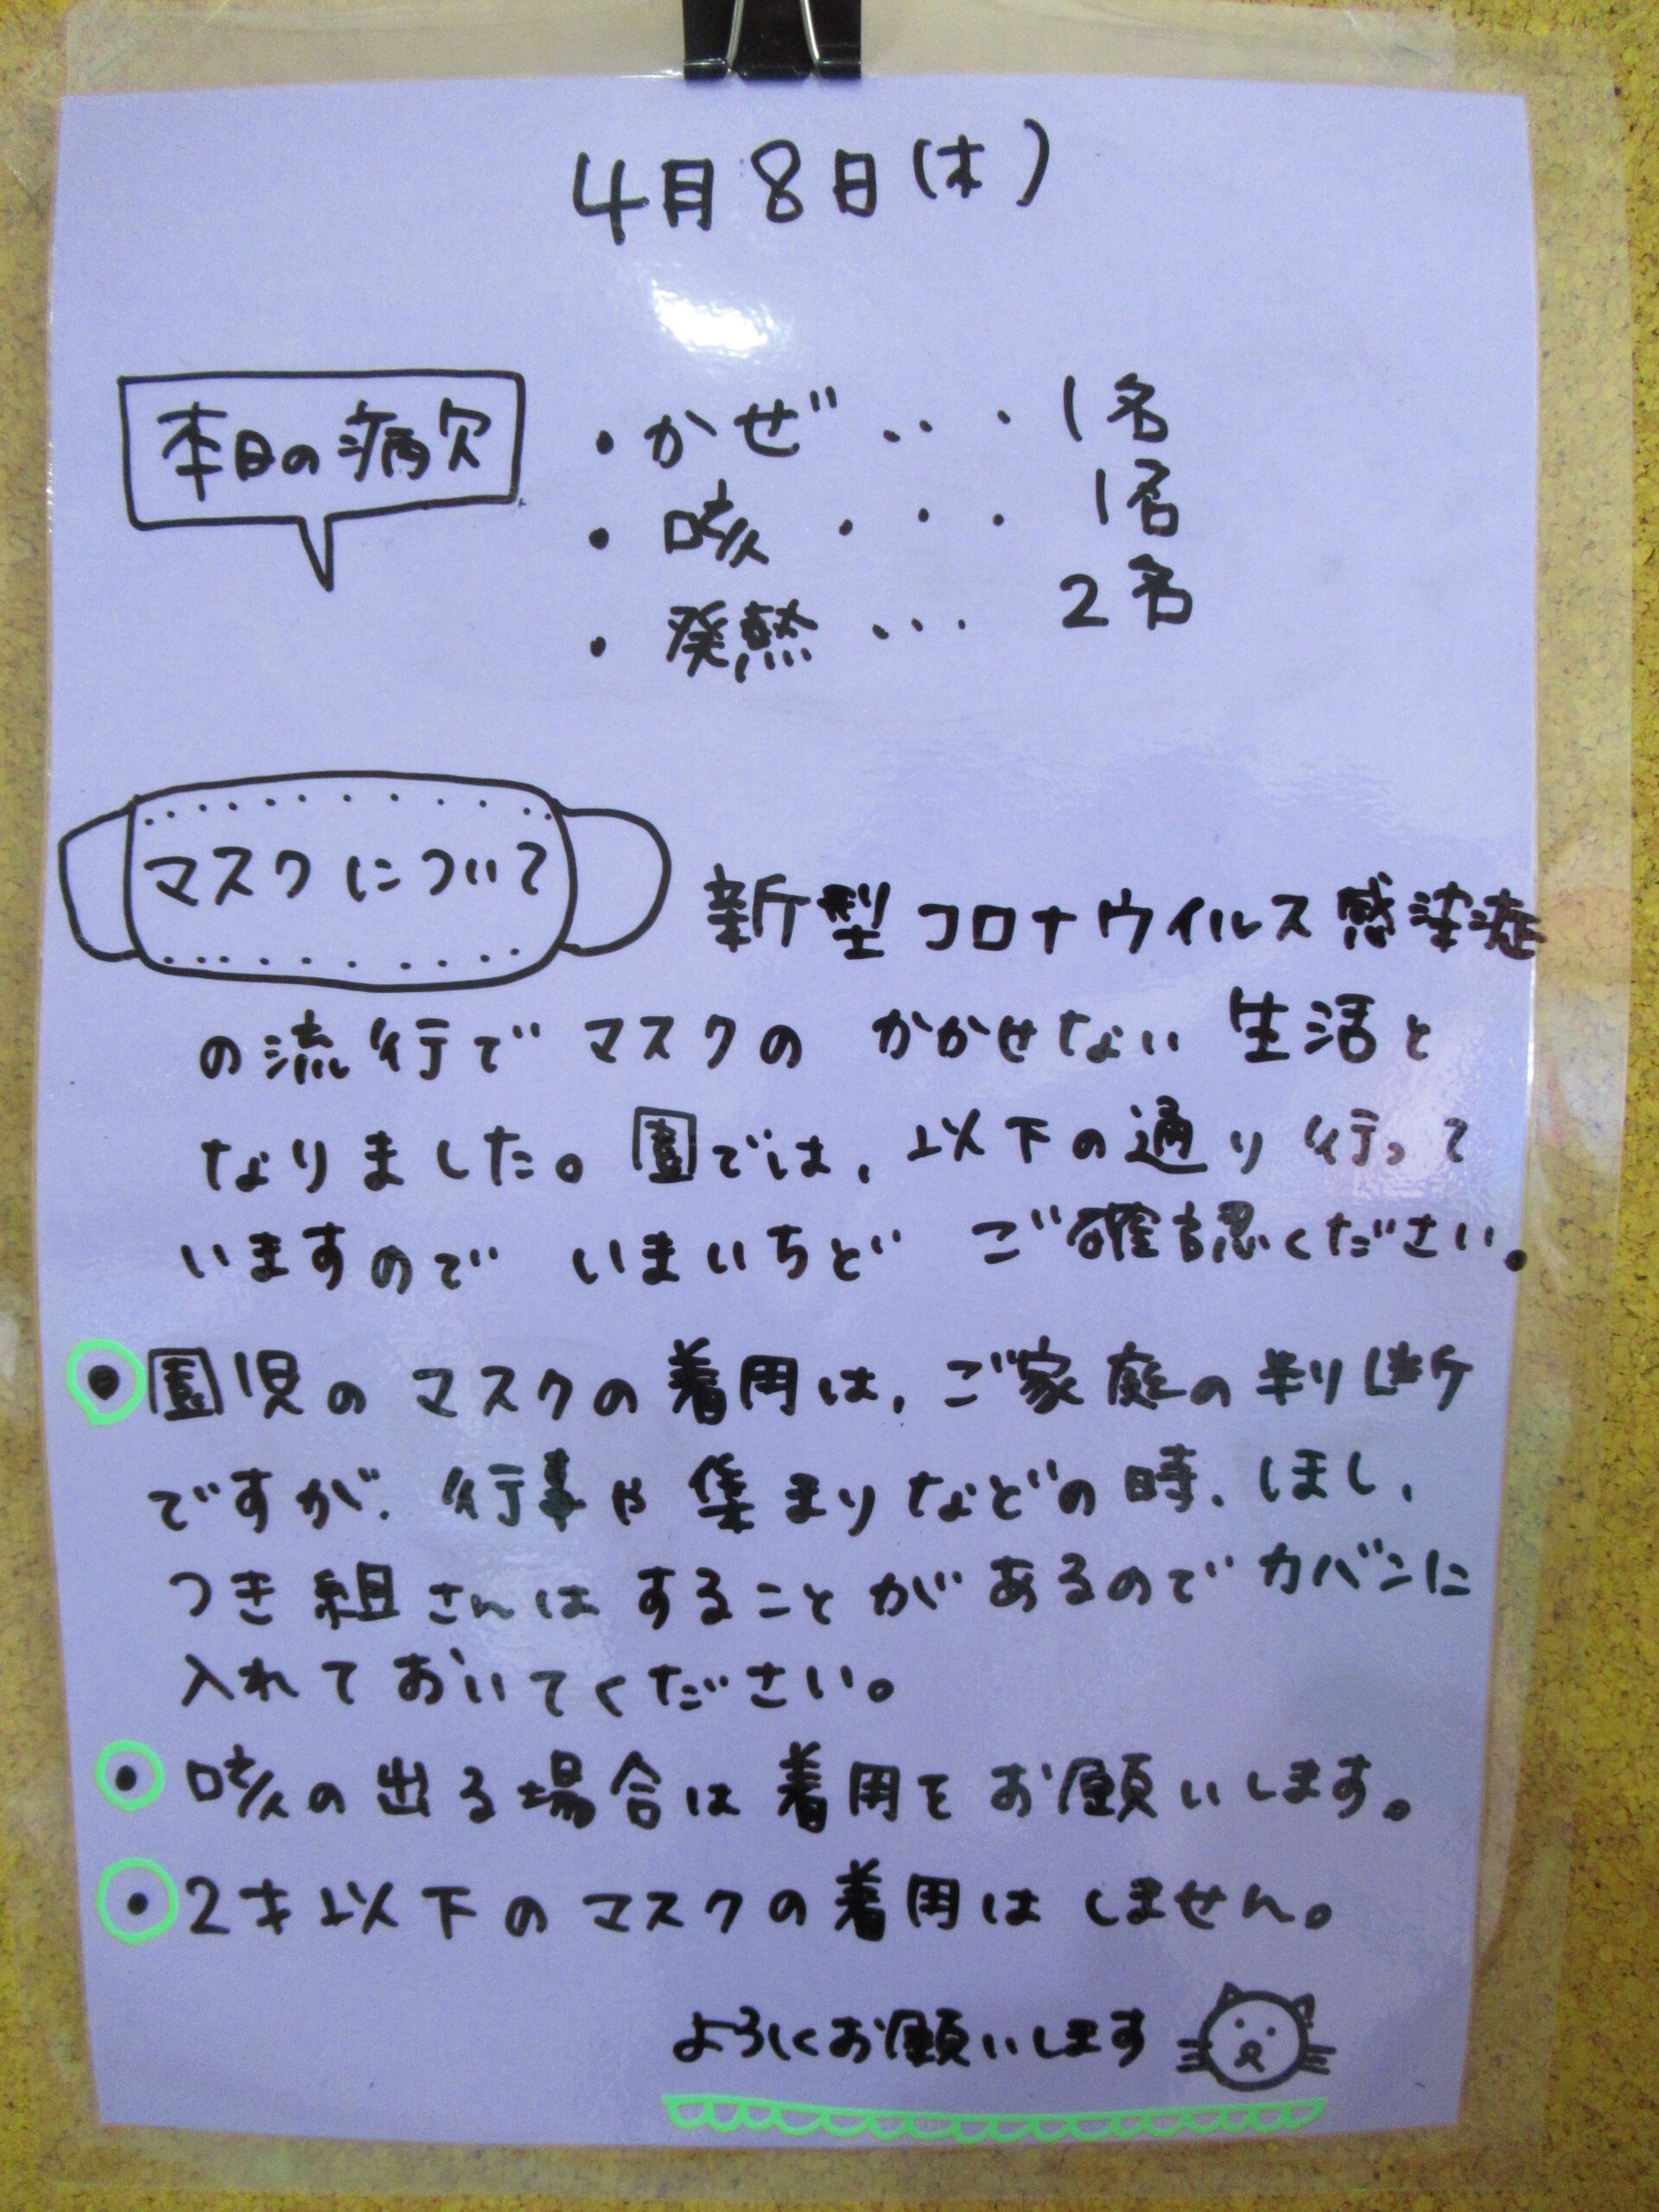 4月8日(木)
本日の病欠
・かぜ・・・1名
・咳・・・1名
・発熱・・・2名
マスクについて
新型コロナウイルス感染症
の流行でマスクの かかせない生活と
なりました。園では、以下の通り行って
いますので いまいちど ご確認ください。
・園児のマスクの着用は、ご家庭の判断
ですが、行事や集まりなどの時、ほし、
つき組さんはすることがあるのでカバンに
入れておいてください。
・咳の出る場合は着用をお願いします。
・2才以下のマスクの着用はしません。
よろしくお願いします